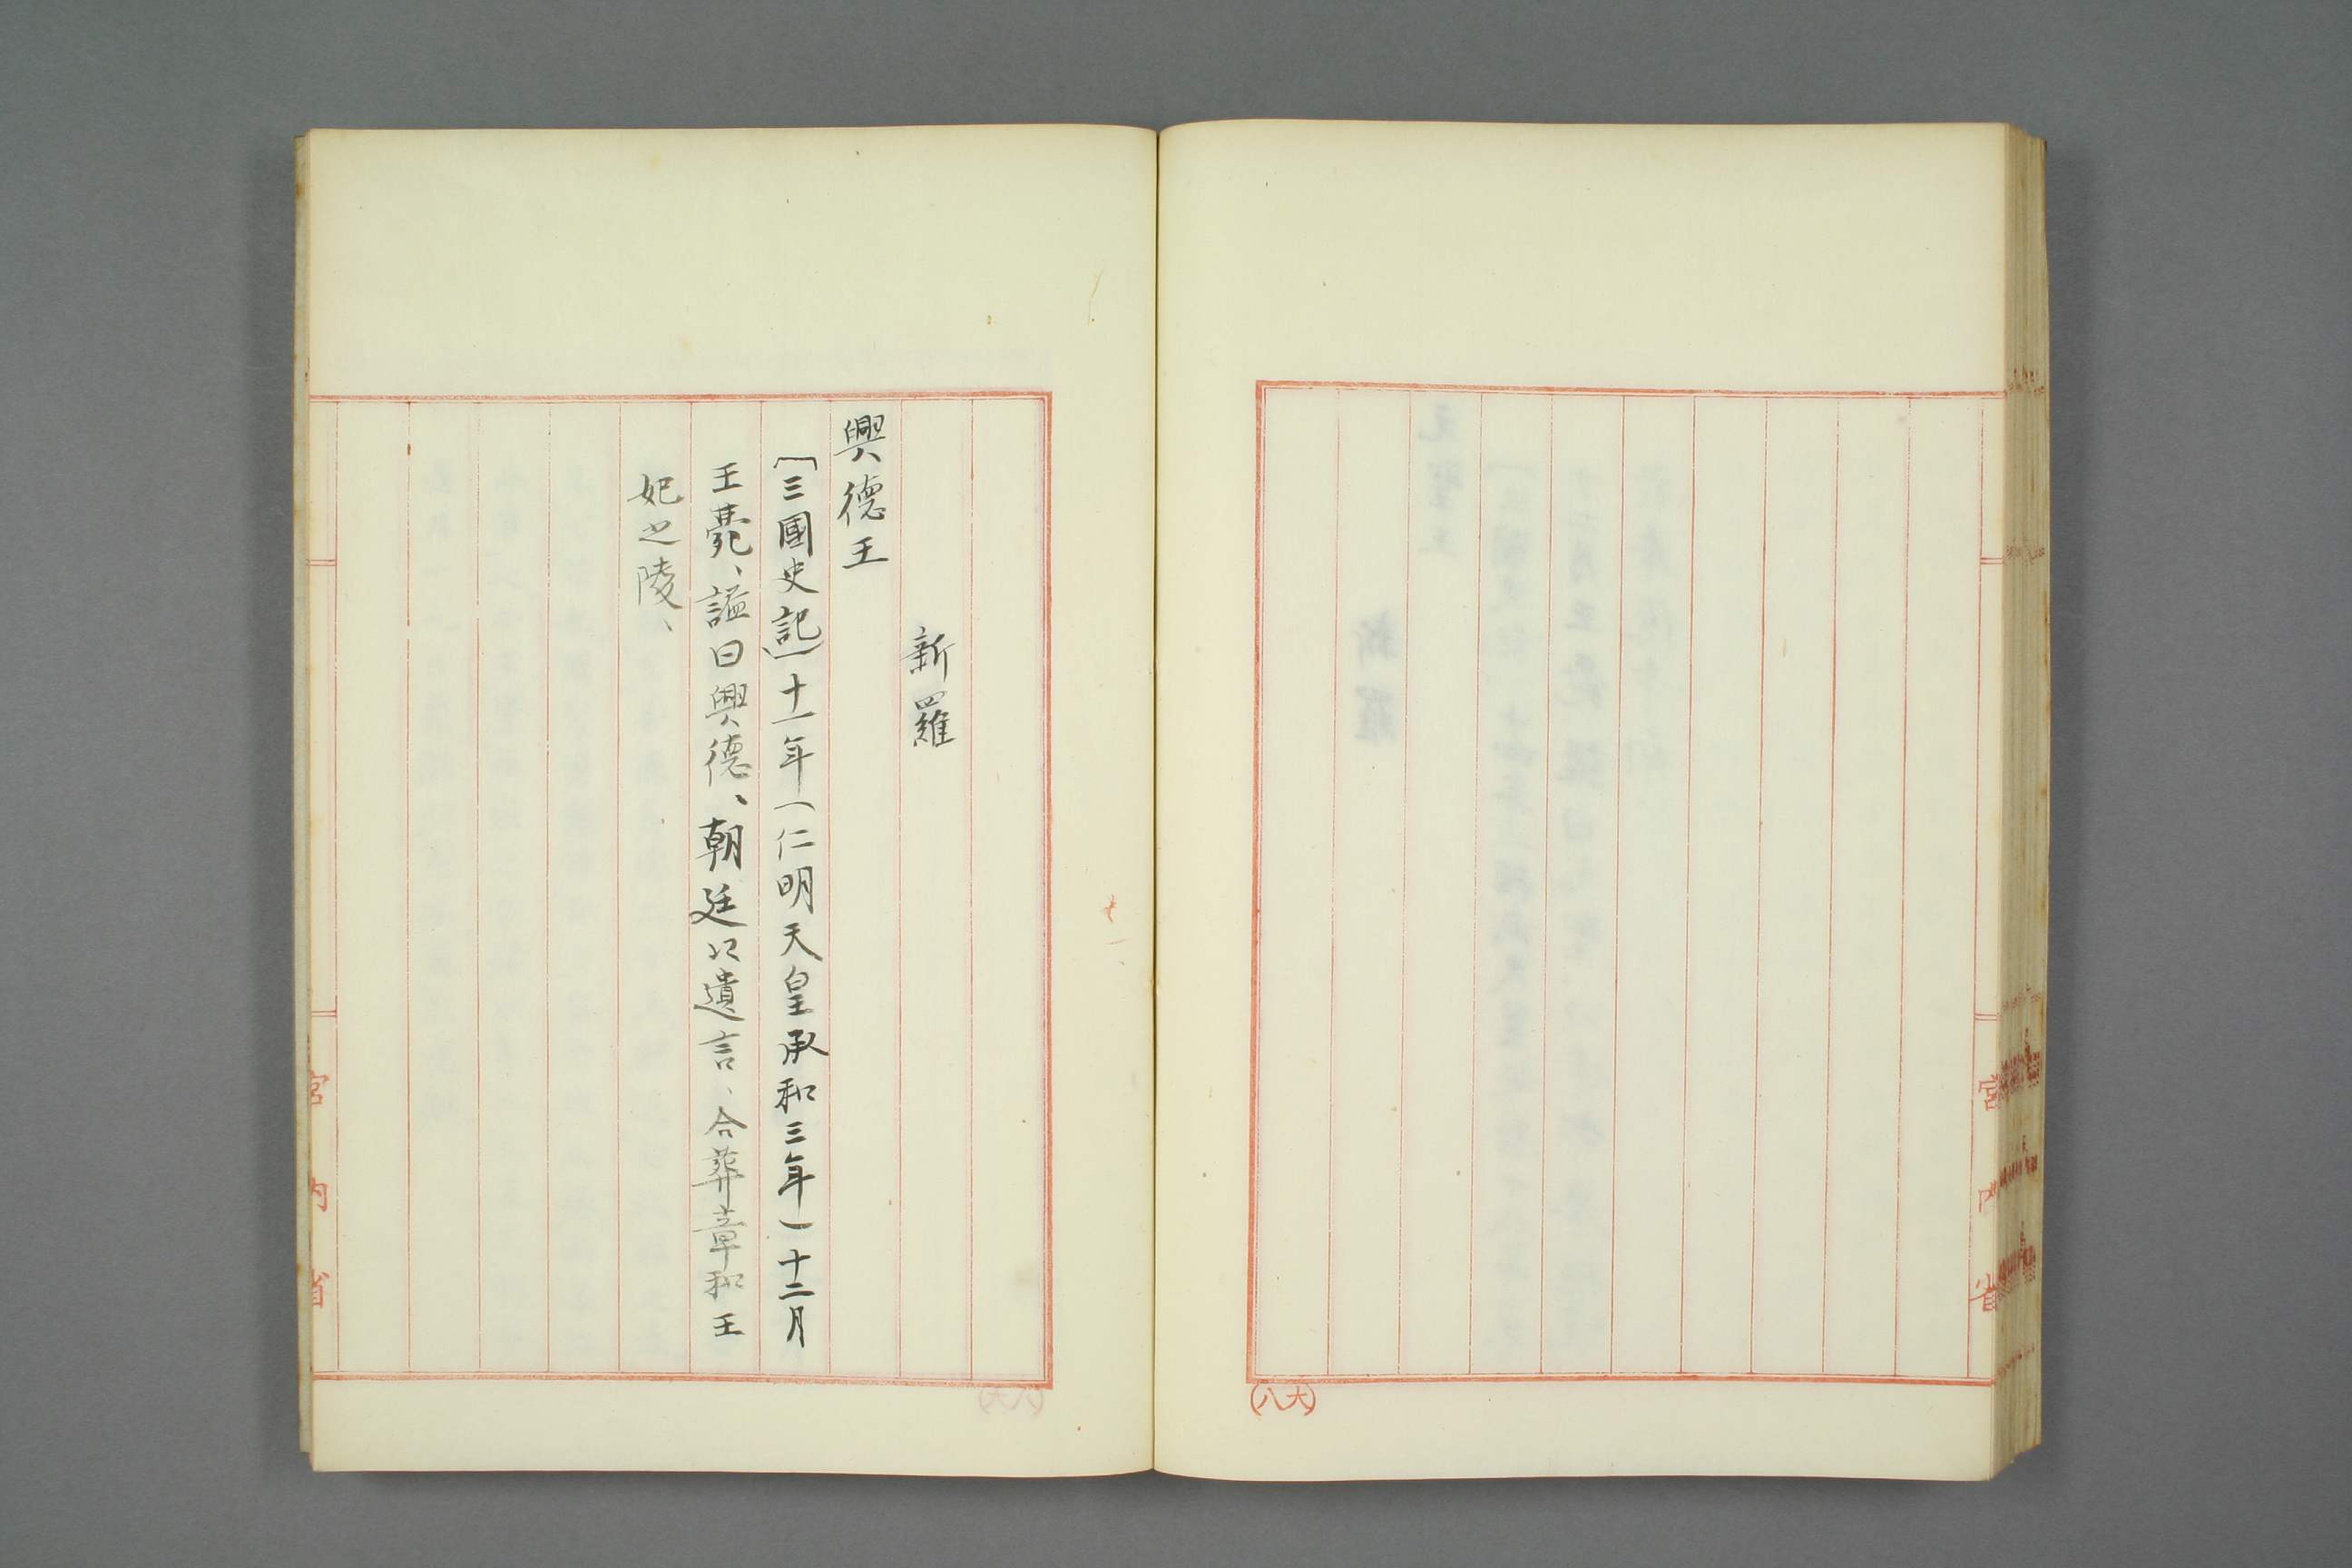 宮内省
(大八)
新羅
興德王
〔三國史記〕十一年(仁明天皇承和三年)十二月
王薨、諡曰興德、朝廷以遺言、合葬章和王
妃之陵、
宮内省